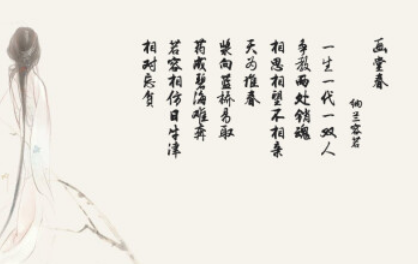 画堂春
纳兰容若
一生一代一双人
争教两处销魂
相思相望不相亲
天为谁春
浆向蓝桥易取
药成碧海难奔
若容相仿日牛津
相对忘贫